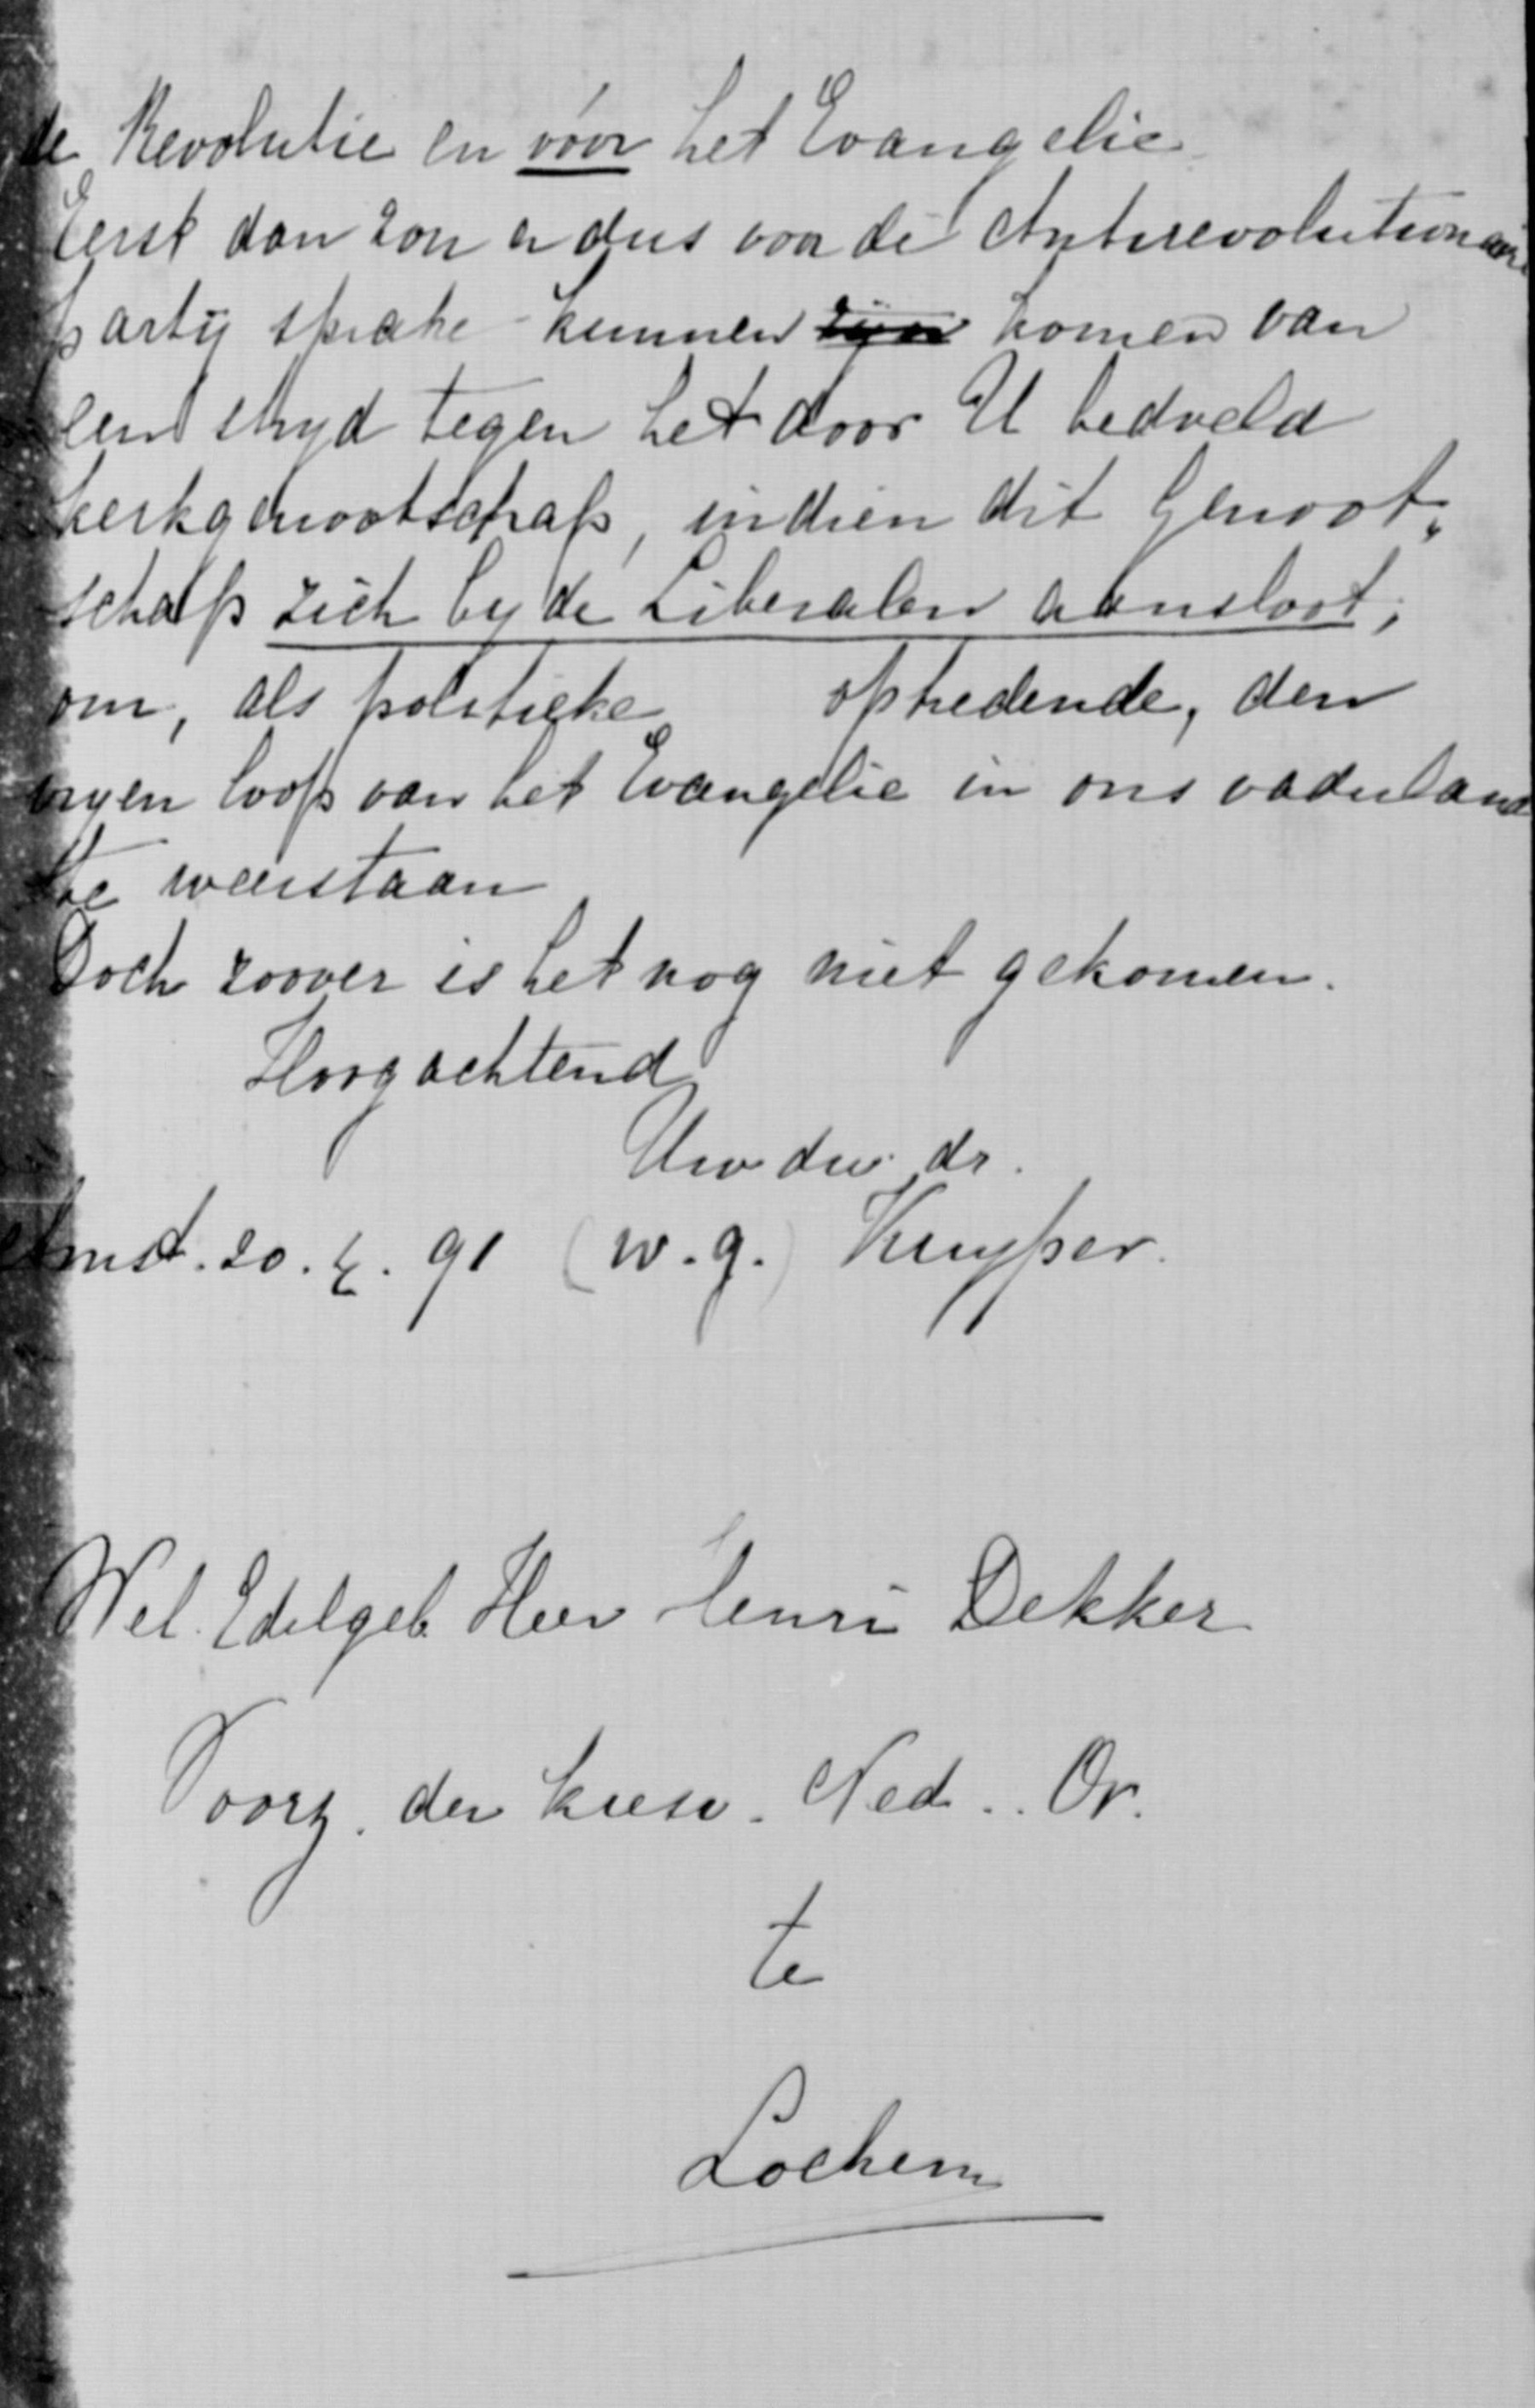 de Revolutie en vóór het Evangelie
Eerst dan zou er dus voor de Antirevolutionaire
party sprake kunnen zijn komen van
een stryd tegen het door U bedoeld
kerkgenootschap, indien dit Genoot„
schap zich by de Liberalen aansloot,
om, als politieke optredende, den
vryen loop van het Evangelie in ons vaderland
te weerstaan
Doch zoover is het nog niet gekomen.
Hoogachtend
Uw dw. dr.
Amst. 20. 4. 91 (w.g.) Kuyper.
Wel. Edelgeb. Heer Henri Dekker
Voorz. der kiesv. Ned.. Or.
te
Lochem